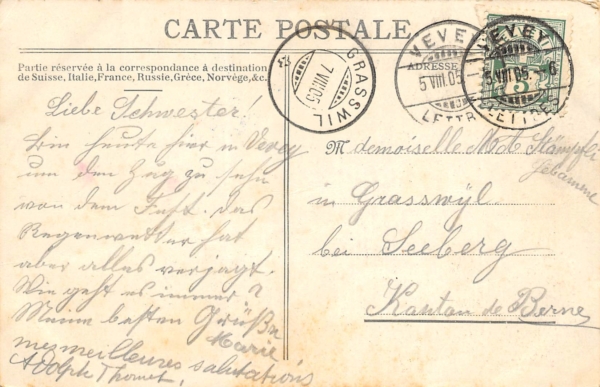 CARTE POSTALE
Partie réservée à la correspondance à destination
de Suisse, Italie, France, Russie, Grèce, Norvège, &c.
ADRESSE
VEVEY
5 VIII 05
LETTR
VEVEY
5 VIII 05. - 6
LETTRE
5
GRASSWIL
7 VIII 05
Liebe Schwester!
Bin heute hier in Vevey
um den Zug zu sehn
von dem Fest. Das
Regenwetter hat
aber alles verjagt.
Wie geht es immer?
Meine besten Grüße
Marie
mes meilleures salutations
Adolphe Thomet.
Mademoiselle Stämpfli
Hebamme
in Grasswyl.
bei Seeberg
Kanton de Berne